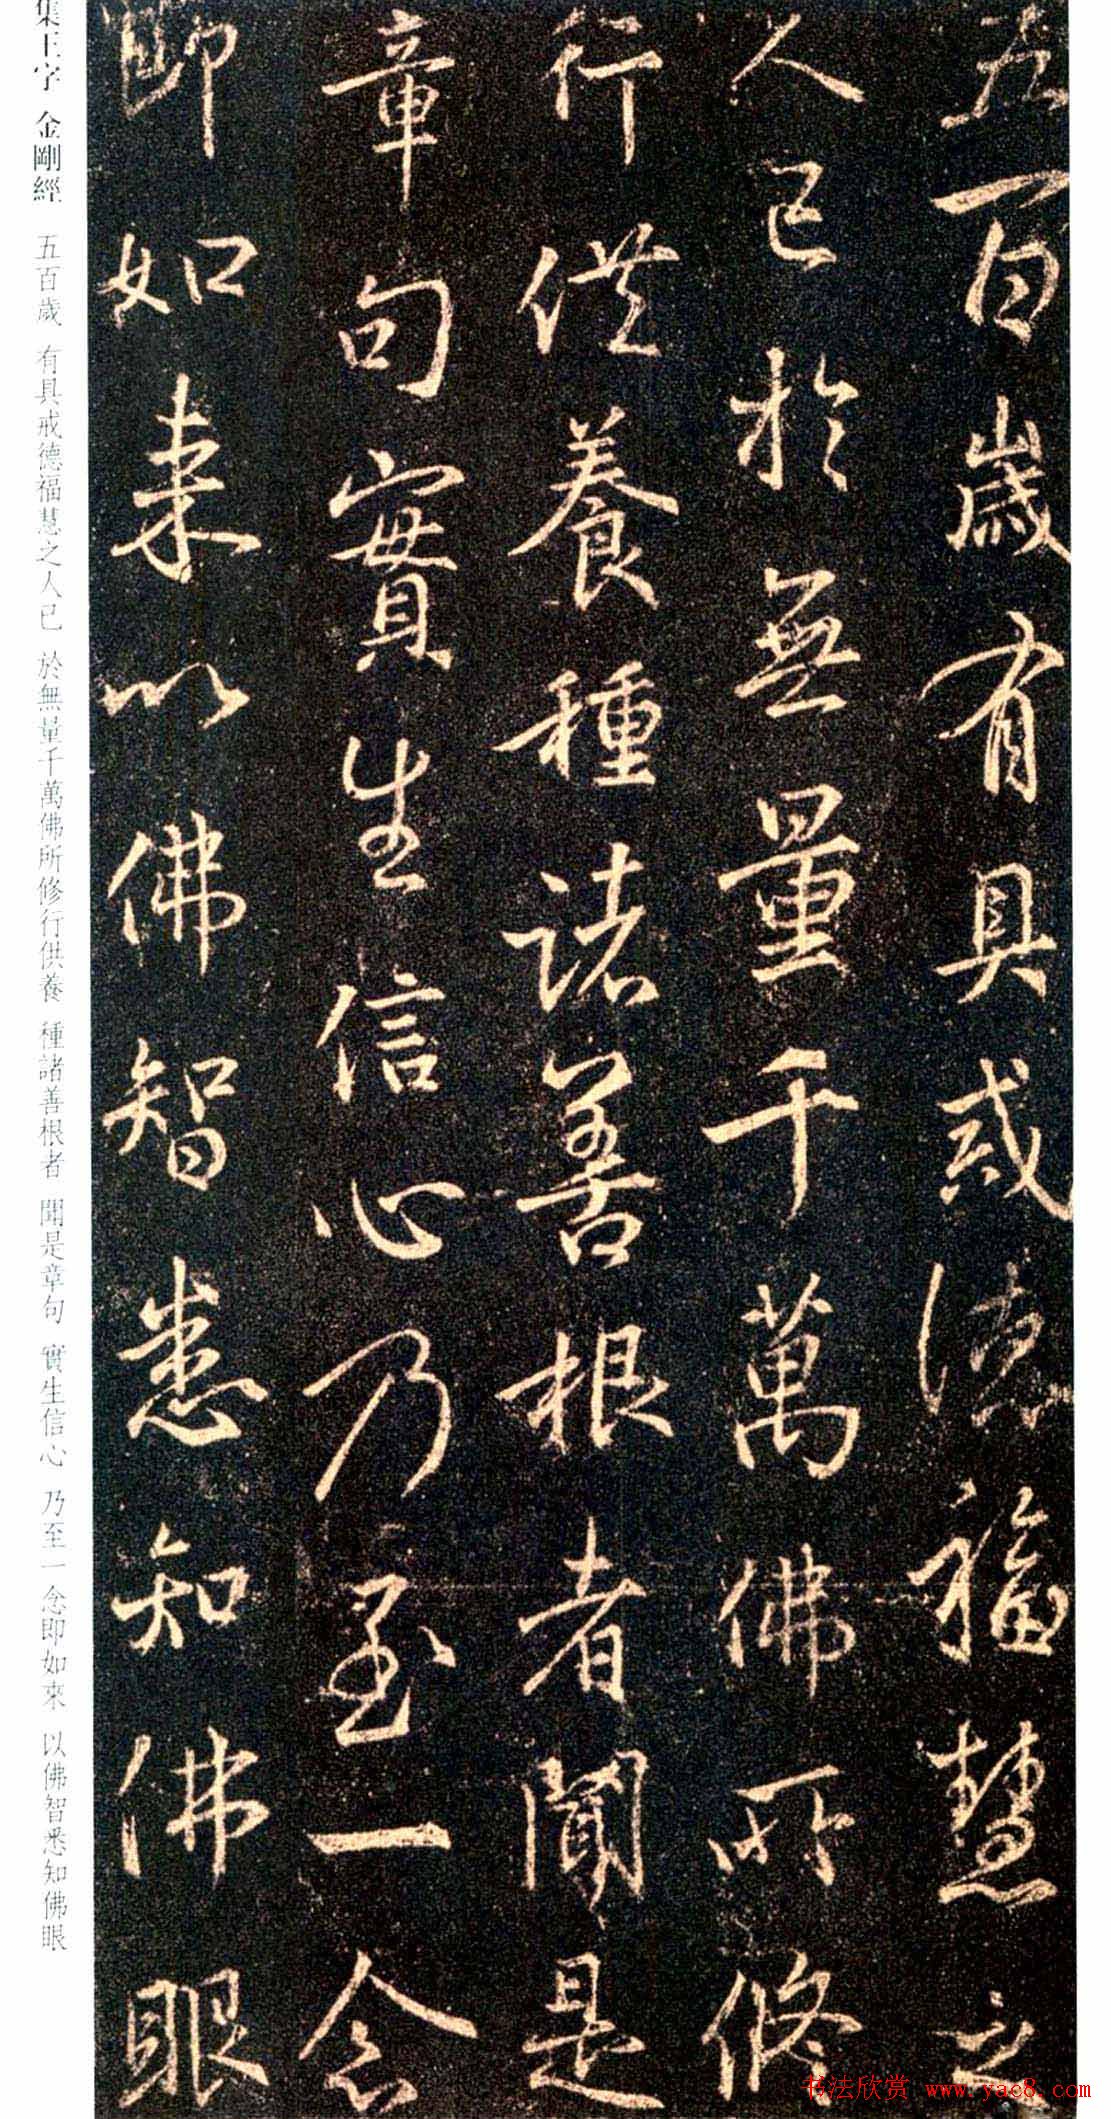 五百歲有具戒德福慧之
人已於無量千萬佛所修
行供養種諸善根者聞是
章句實生信心乃至一念
即如來以佛智悉知佛眼
集王字 金剛經 五百歲 有具戒德福慧之人已 於無量千萬佛所修行供養 種諸善根者 聞是章句 實生信心 乃至一念即如來 以佛智悉知佛眼
书法欣赏 www.yac8.com